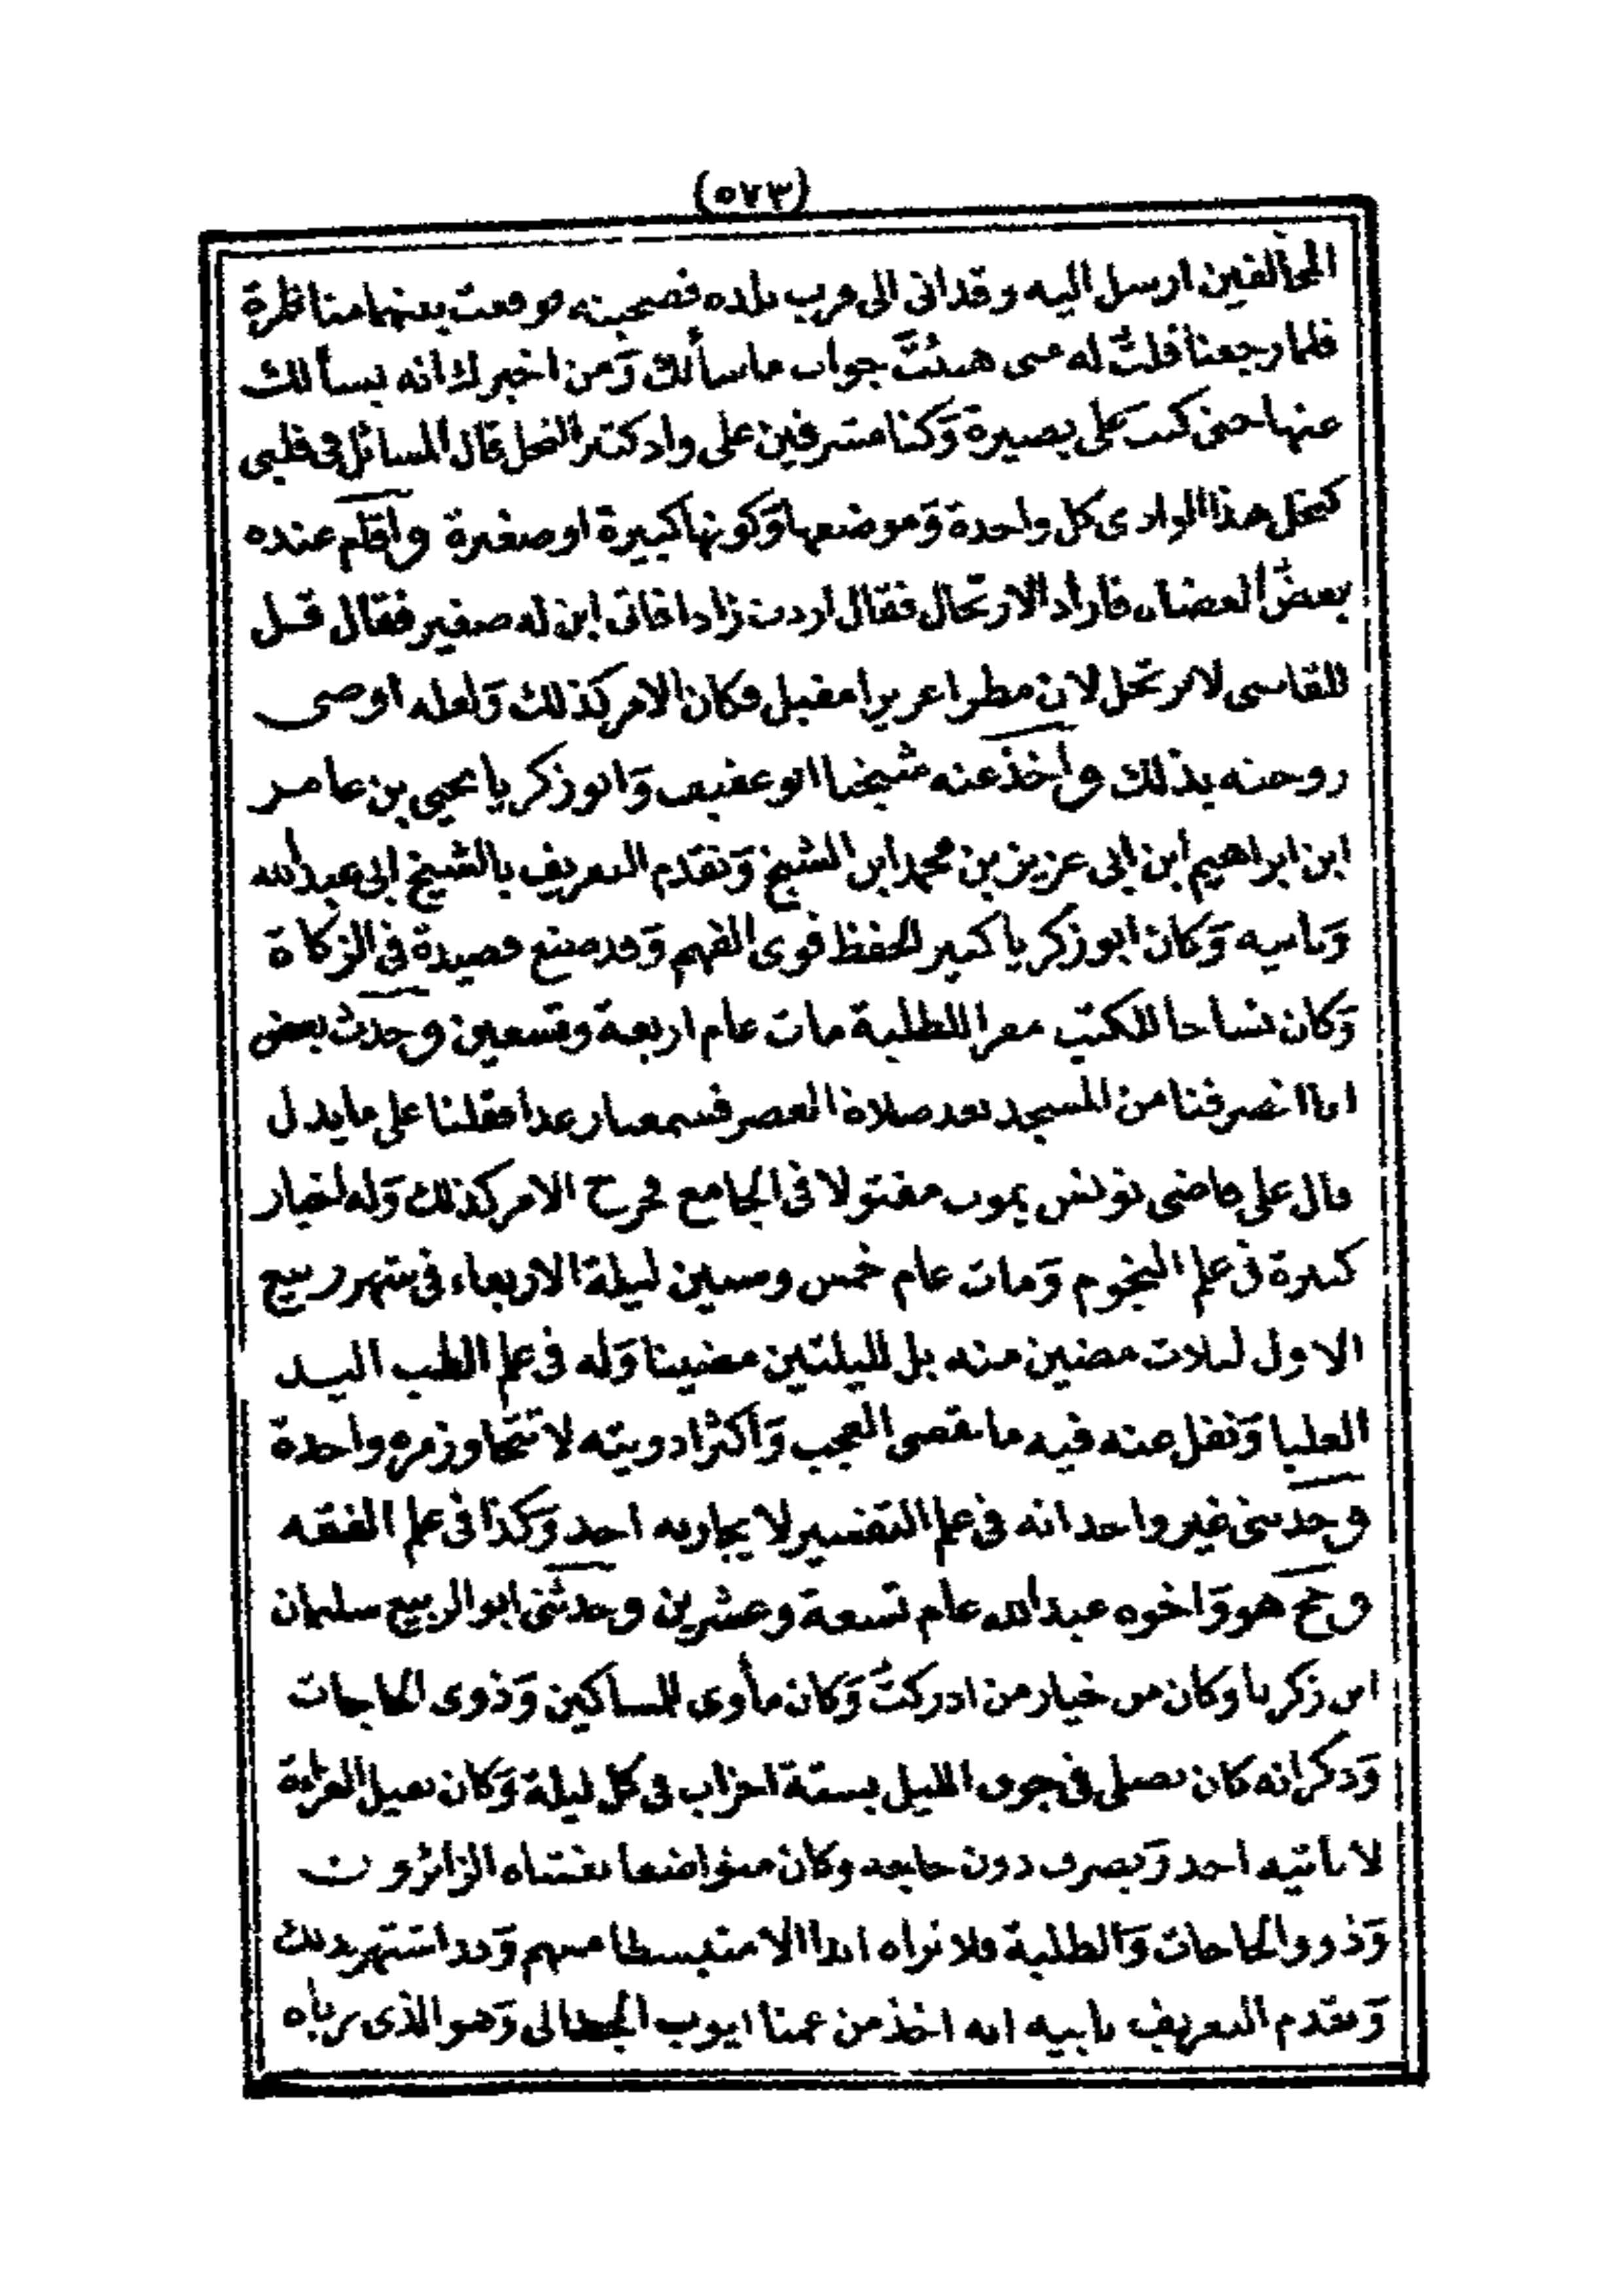 (٥٧٣)
المخالفين ارسل اليه وقد اتى الى قرب بلده فصحبته فوقعت بينهما مناظرة
فلما رجعنا قلت له متى هيئت جواب ما سألك وَمن اخبرك انه يسألك
عنها حتى كنت على بصيرة وَكنا مشرفين على واد كثير النخل قال المسائل فى قلبى
كنخل هذا الوادى كل واحدة وَموضعها وَكونها كبيرة او صغيرة واقام عنده
بعض القضاة فاراد الارتحال فقال اردت زادا فاتى ابن له صغير فقال قل
للقاضى لا يرتحل لان مطرا غزيرا مقبل فكان الامر كذلك وَلعله اوصى
زوجته بذلك واخذ عنه شيخنا ابو عفيف وَابو زكريا يحيى بن عامر
ابن ابراهيم ابن ابى عزيز بن محمد ابن الشيخ وَتقدم التعريف بالشيخ ابى عبدالله
وَبابيه وَكان ابو زكريا كثير الحفظ قوى الفهم وَقد صنع قصيدة فى الزكاة
وَكان نساخا للكتب مقرا للطلبة مات عام اربعة وتسعين وحدث بعض
انا انصرفنا من المسجد بعد صلاة العصر فسمعنا رعدا فقلنا على ما يدل
قال على قاضى تونس يموت مقتولا فى الجامع فخرج الامر كذلك وَله اخبار
كثيرة فى علم النجوم وَمات عام خمس وستين ليلة الاربعاء فى شهر ربيع
الاول لثلاث مضين منه بل لليلتين مضينا وَله فى علم الطب اليد
العليا وَنقل عنه فيه ما يقضى العجب وَاكثر ادويته لا تتجاوز مرة واحدة
وحدثنى غير واحد انه فى علم التفسير لا يجاريه احد وَكذا فى علم الفقه
وحج هو وَاخوه عبدالله عام تسعة وعشرين وحدثنى ابو الربيع سليمان
ابن زكريا وكان من خيار من ادركت وَكان مأوى للمساكين وَذوى الحاجات
وَذكر انه كان يصلى فى جوف الليل بستة احزاب فى كل ليلة وَكان ثقيل القراءة
لا ياتيه احد وَيصرف دون حاجته وكان متواضعا يغشاه الزائرون
وَذوو الحاجات وَالطلبة فلا تراه ابدا الا متبسطا معهم وَقد اشتهر بذلك
وَتقدم التعريف بابيه انه اخذ من عمنا ايوب الجيطالى وَهو الذى رباه